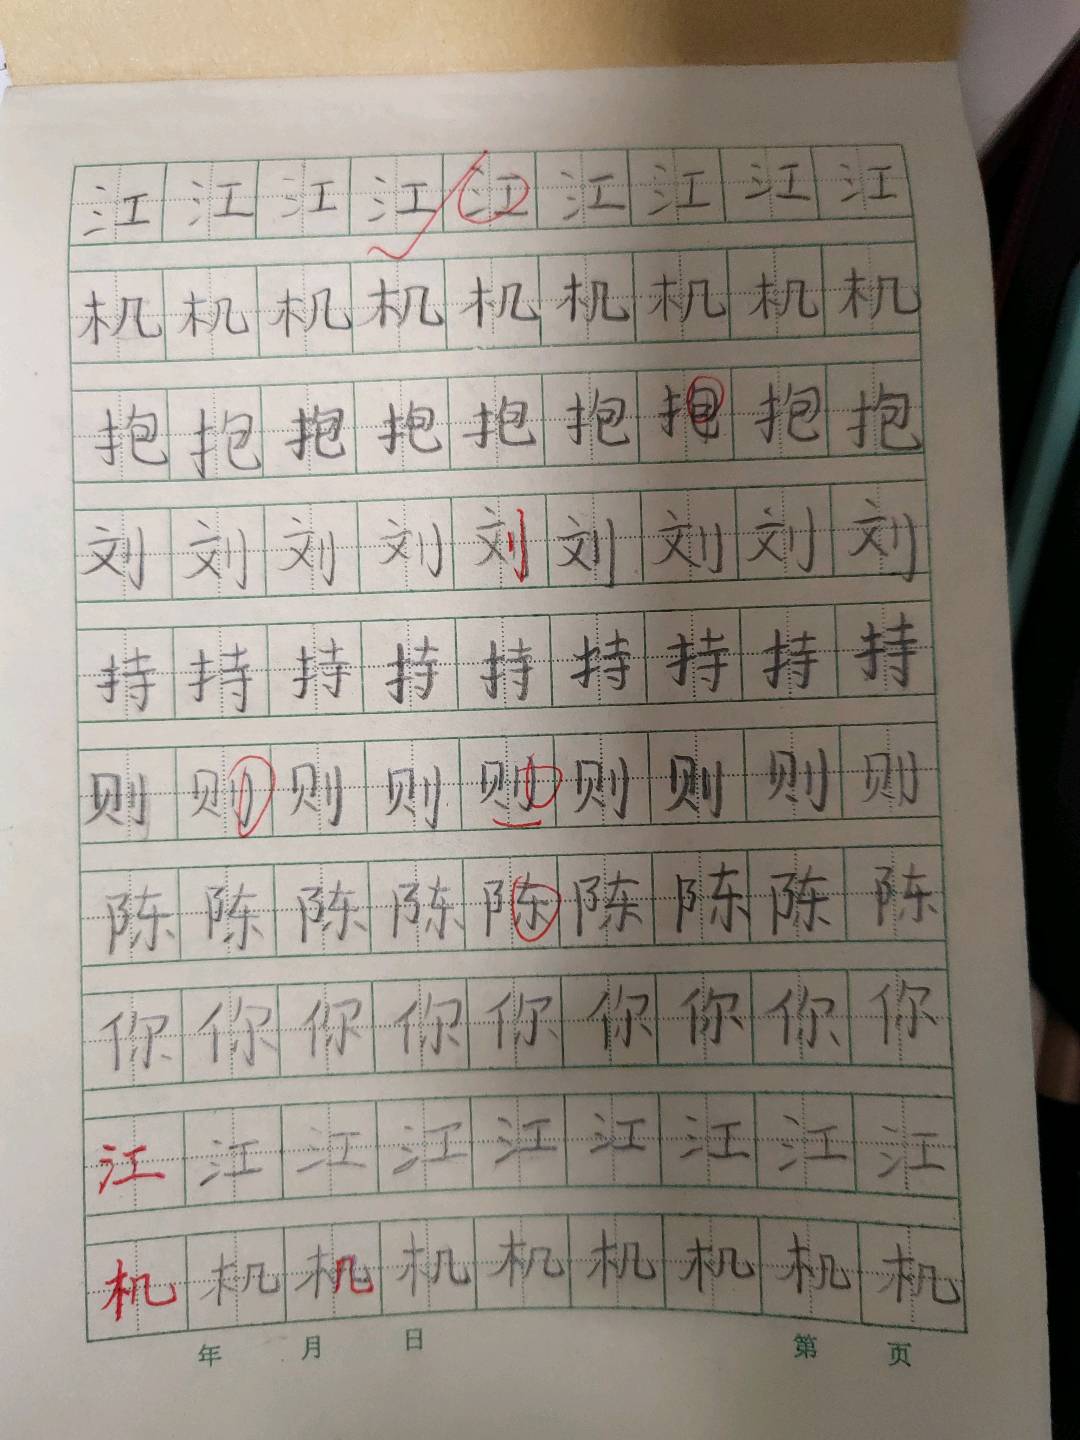 江江江江江江江江江
机机机机机机机机机
抱抱抱抱抱抱抱抱抱
刘刘刘刘刘刘刘刘刘
持持持持持持持持持
则则则则则则则则则
陈陈陈陈陈陈陈陈陈
你你你你你你你你你
江江江江江江江江江
机机机机机机机机机
年 月 日 第 页